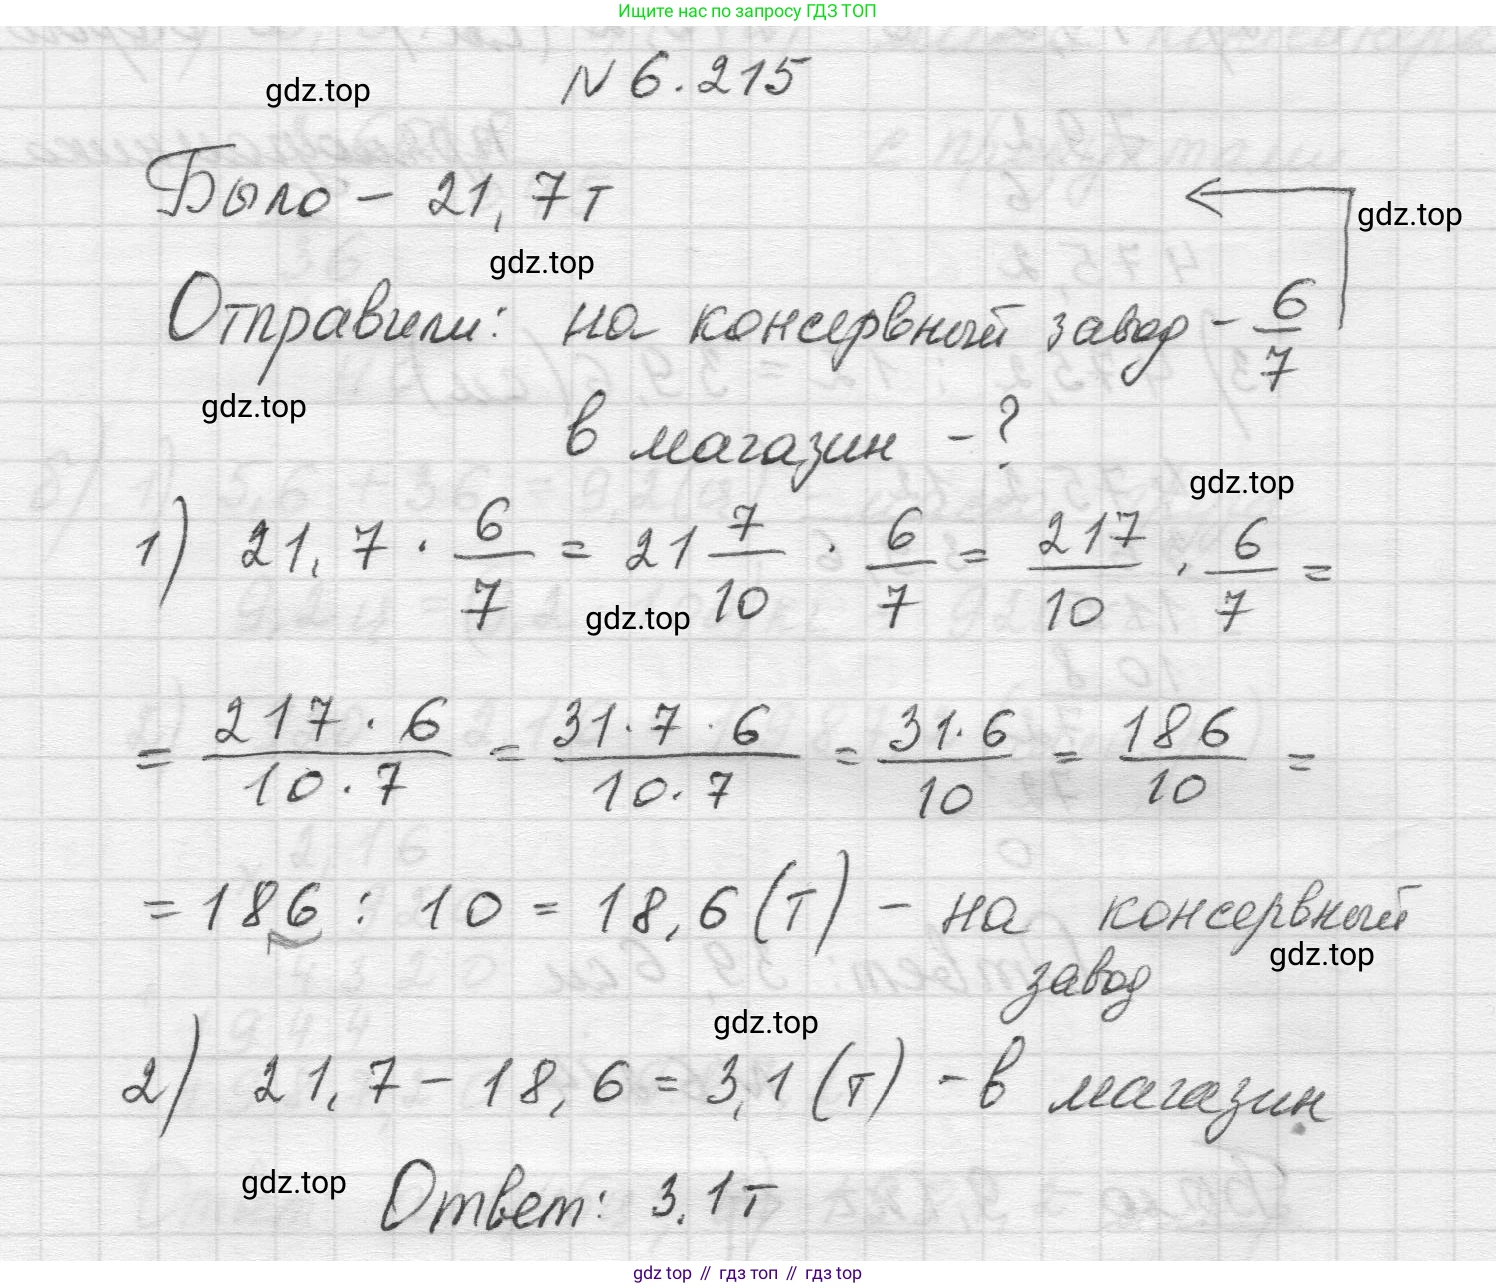 Ищите нас по запросу ГДЗ ТОП
N 6.215
gdz.top
Было – 21,7 т
gdz.top
gdz.top
Отправили: на консервный завод – 6/7
gdz.top
в магазин – ?
gdz.top
1) 21,7 · 6/7 = 21 7/10 · 6/7 = 217/10 · 6/7 =
gdz.top
= 217 · 6/10 · 7 = 31 · 7 · 6/10 · 7 = 31 · 6/10 = 186/10 =
= 186 : 10 = 18,6 (т) – на консервный
gdz.top
завод
gdz.top
2) 21,7 – 18,6 = 3,1 (т) – в магазин
gdz.top
Ответ: 3,1 т
gdz top // гдз топ // гдз top